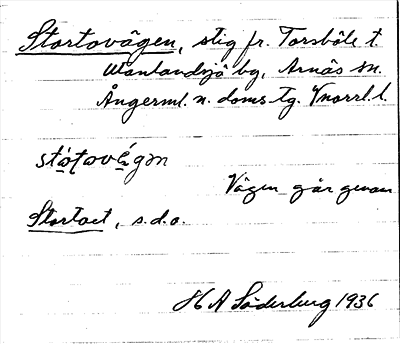 Stortovägen, stig fr. Torsböle t.
Utanlandsjö by, Arnäs sn.
Ångerml. n. doms.tg. Vnorrl. l.
Vägen går genom
Stortoet, s.d.o.
H A Söderberg 1936